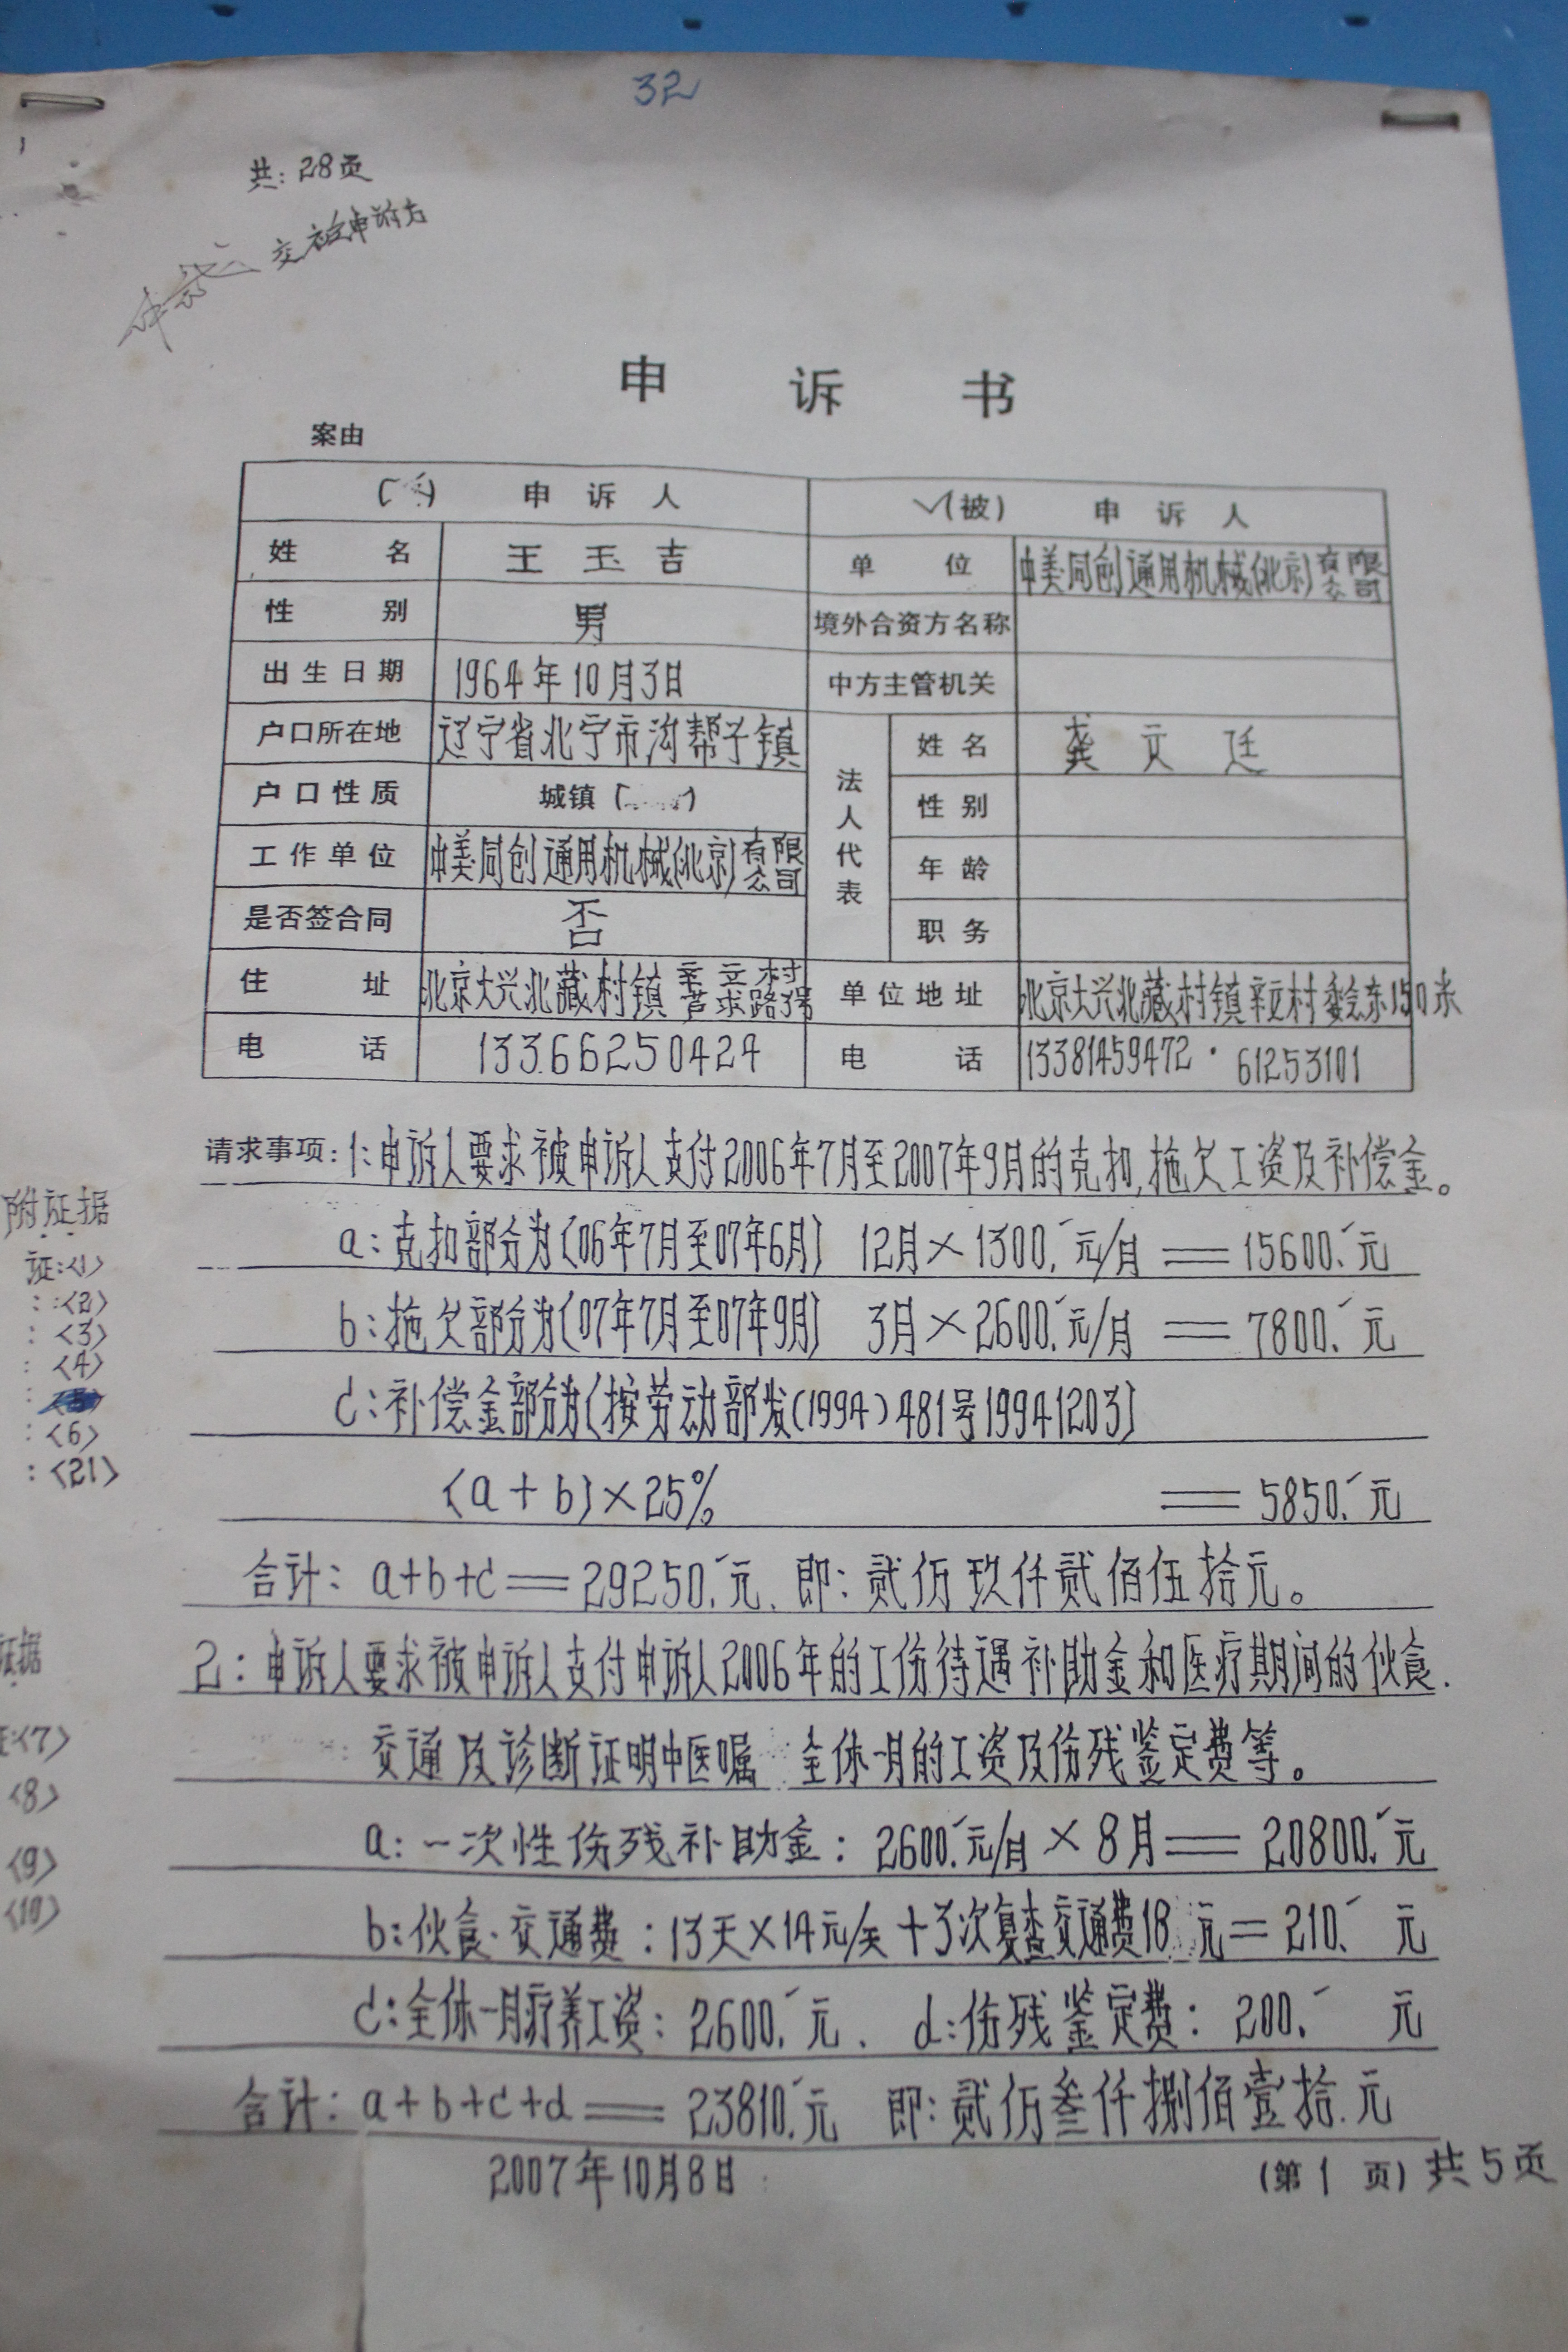 32
共:28页
交被申诉方
申诉书
案由
申诉人 (被) 申诉人
姓名 王玉吉 单位 中美同创通用机械(北京)有限公司
性别 男 境外合资方名称
出生日期 1964年10月3日 中方主管机关
户口所在地 辽宁省北宁市沟帮子镇 法人代表 姓名 龚文廷
户口性质 城镇 性别
工作单位 中美同创通用机械(北京)有限公司 年龄
是否签合同 否 职务
住址 北京大兴北藏村镇 单位地址 北京大兴北藏村镇辛立村委会东150米
电话 13366250424 电话 13381459472·61253101
请求事项:1:申诉人要求被申诉人支付2006年7月至2007年9月的克扣,拖欠工资及补偿金。
附证据
a:克扣部分为(06年7月至07年6月) 12月×1300.元/月=15600.元
证:<1>
:<2>
b:拖欠部分为(07年7月至07年9月) 3月×2600.元/月=7800.元
:<3>
:<4>
c:补偿金部分为(按劳动部发(1994)481号19941203)
:<6>
:<21>
(a+b)×25% =5850.元
合计:a+b+c=29250.元.即:贰万玖仟贰佰伍拾元。
2:申诉人要求被申诉人支付申诉人2006年的工伤待遇补助金和医疗期间的伙食.
证据
交通及诊断证明中医嘱 全休一月的工资及伤残鉴定费等。
证:<7>
<8>
a:一次性伤残补助金:2600.元/月×8月=20800.元
<9>
<10>
b:伙食.交通费:13天×14元/天+3次复查交通费18元=210.元
c:全休一月疗养工资:2600.元. d:伤残鉴定费:200.元
合计:a+b+c+d=23810.元 即:贰万叁仟捌佰壹拾.元
2007年10月8日
(第1页)共5页